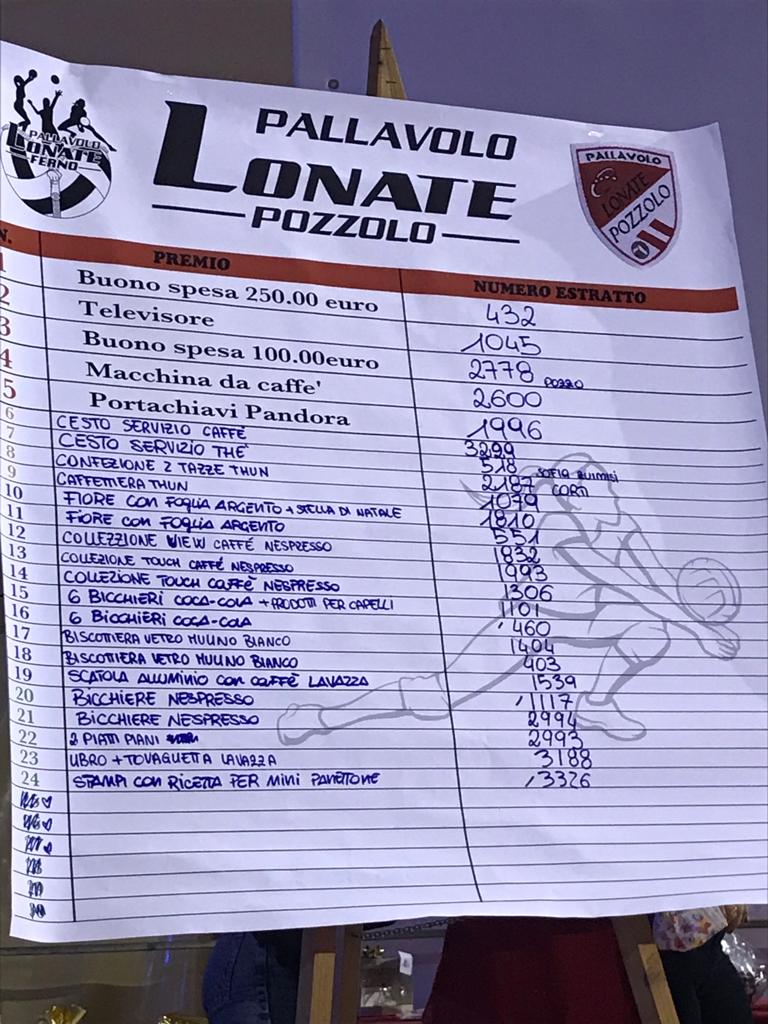 PALLAVOLO
LONATE
FERNO
PALLAVOLO
LONATE
POZZOLO
PALLAVOLO
LONATE
POZZOLO
N. PREMIO NUMERO ESTRATTO
1 Buono spesa 250.00 euro 432
2 Televisore 1045
3 Buono spesa 100.00euro 2778 POZZO
4 Macchina da caffe' 2600
5 Portachiavi Pandora 1996
6 CESTO SERVIZIO CAFFÈ 3299
7 CESTO SERVIZIO THE' 518 SOFIA
8 CONFEZIONE 2 TAZZE THUN 2187 CORTI
9 CAFFETTIERA THUN 1079
10 FIORE CON FOGLIA ARGENTO + STELLA DI NATALE 1810
11 FIORE CON FOGLIA ARGENTO 551
12 COLLEZZIONE VIEW CAFFÉ NESPRESSO 1832
13 COLLEZIONE TOUCH CAFFÉ NESPRESSO 1993
14 COLLEZIONE TOUCH CAFFÈ NESPRESSO 1306
15 6 BICCHIERI COCA-COLA + PRODOTTI PER CAPELLI 1101
16 6 BICCHIERI COCA-COLA 460
17 BISCOTTIERA VETRO MULINO BIANCO 1404
18 BISCOTTIERA VETRO MULINO BIANCO 403
19 SCATOLA ALLUMINIO CON CAFFÈ LAVAZZA 1539
20 BICCHIERE NESPRESSO 1117
21 BICCHIERE NESPRESSO 2994
22 2 PIATTI PIANI 2993
23 LIBRO + TOVAGLIETTA LAVAZZA 3188
24 STAMPI CON RICETTA PER MINI PANETTONE 3326